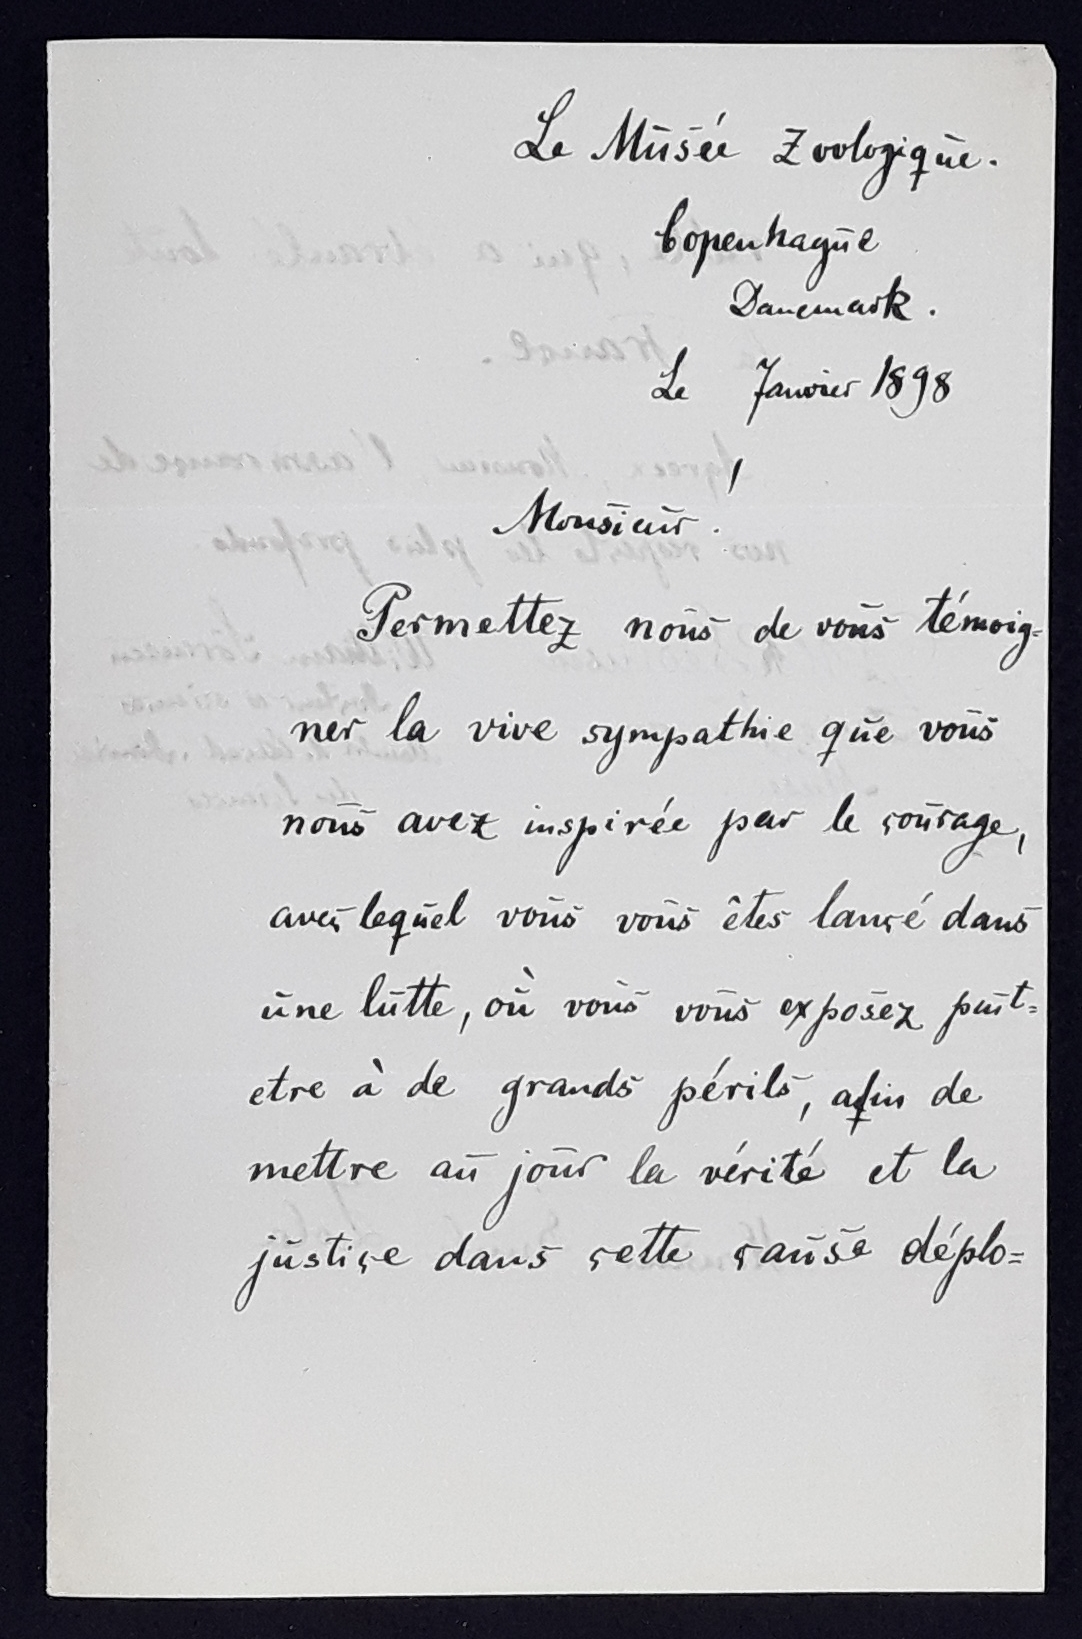 Le Musée Zoologique.
Copenhague
Danemark.
Le Janvier 1898
Monsieur!
Permettez nous de vous témoig=
ner la vive sympathie que vous
nous avez inspirée par le courage,
aveç lequel vous vous êtes lançé dans
une lutte, où vous vous exposez put=
etre à de grands périls, afin de
mettre au jour la vérité et la
justiçe dans çette çause déplo=